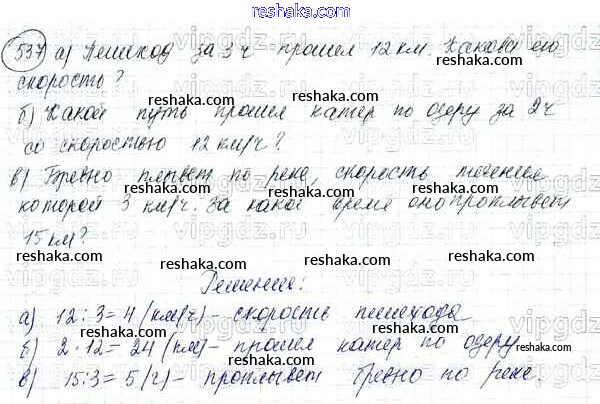 reshaka.com
537 а) Пешеход за 3 ч прошел 12 км. Какова его
скорость? reshaka.com
б) Какой путь прошел катер по озеру за 2ч
reshaka.com reshaka.com
со скоростью 12 км/ч?
в) Бревно плывет по реке, скорость течения
reshaka.com reshaka.com
которой 3 км/ч. За какое время оно проплывет
15 км?
reshaka.com reshaka.com
Решение:
а) 12 : 3 = 4 (км/ч) – скорость пешехода
reshaka.com reshaka.com
б) 2 · 12 = 24 (км) – прошел катер по озеру.
в) 15:3 = 5 (ч) – проплывет бревно по реке.
reshaka.com reshaka.com